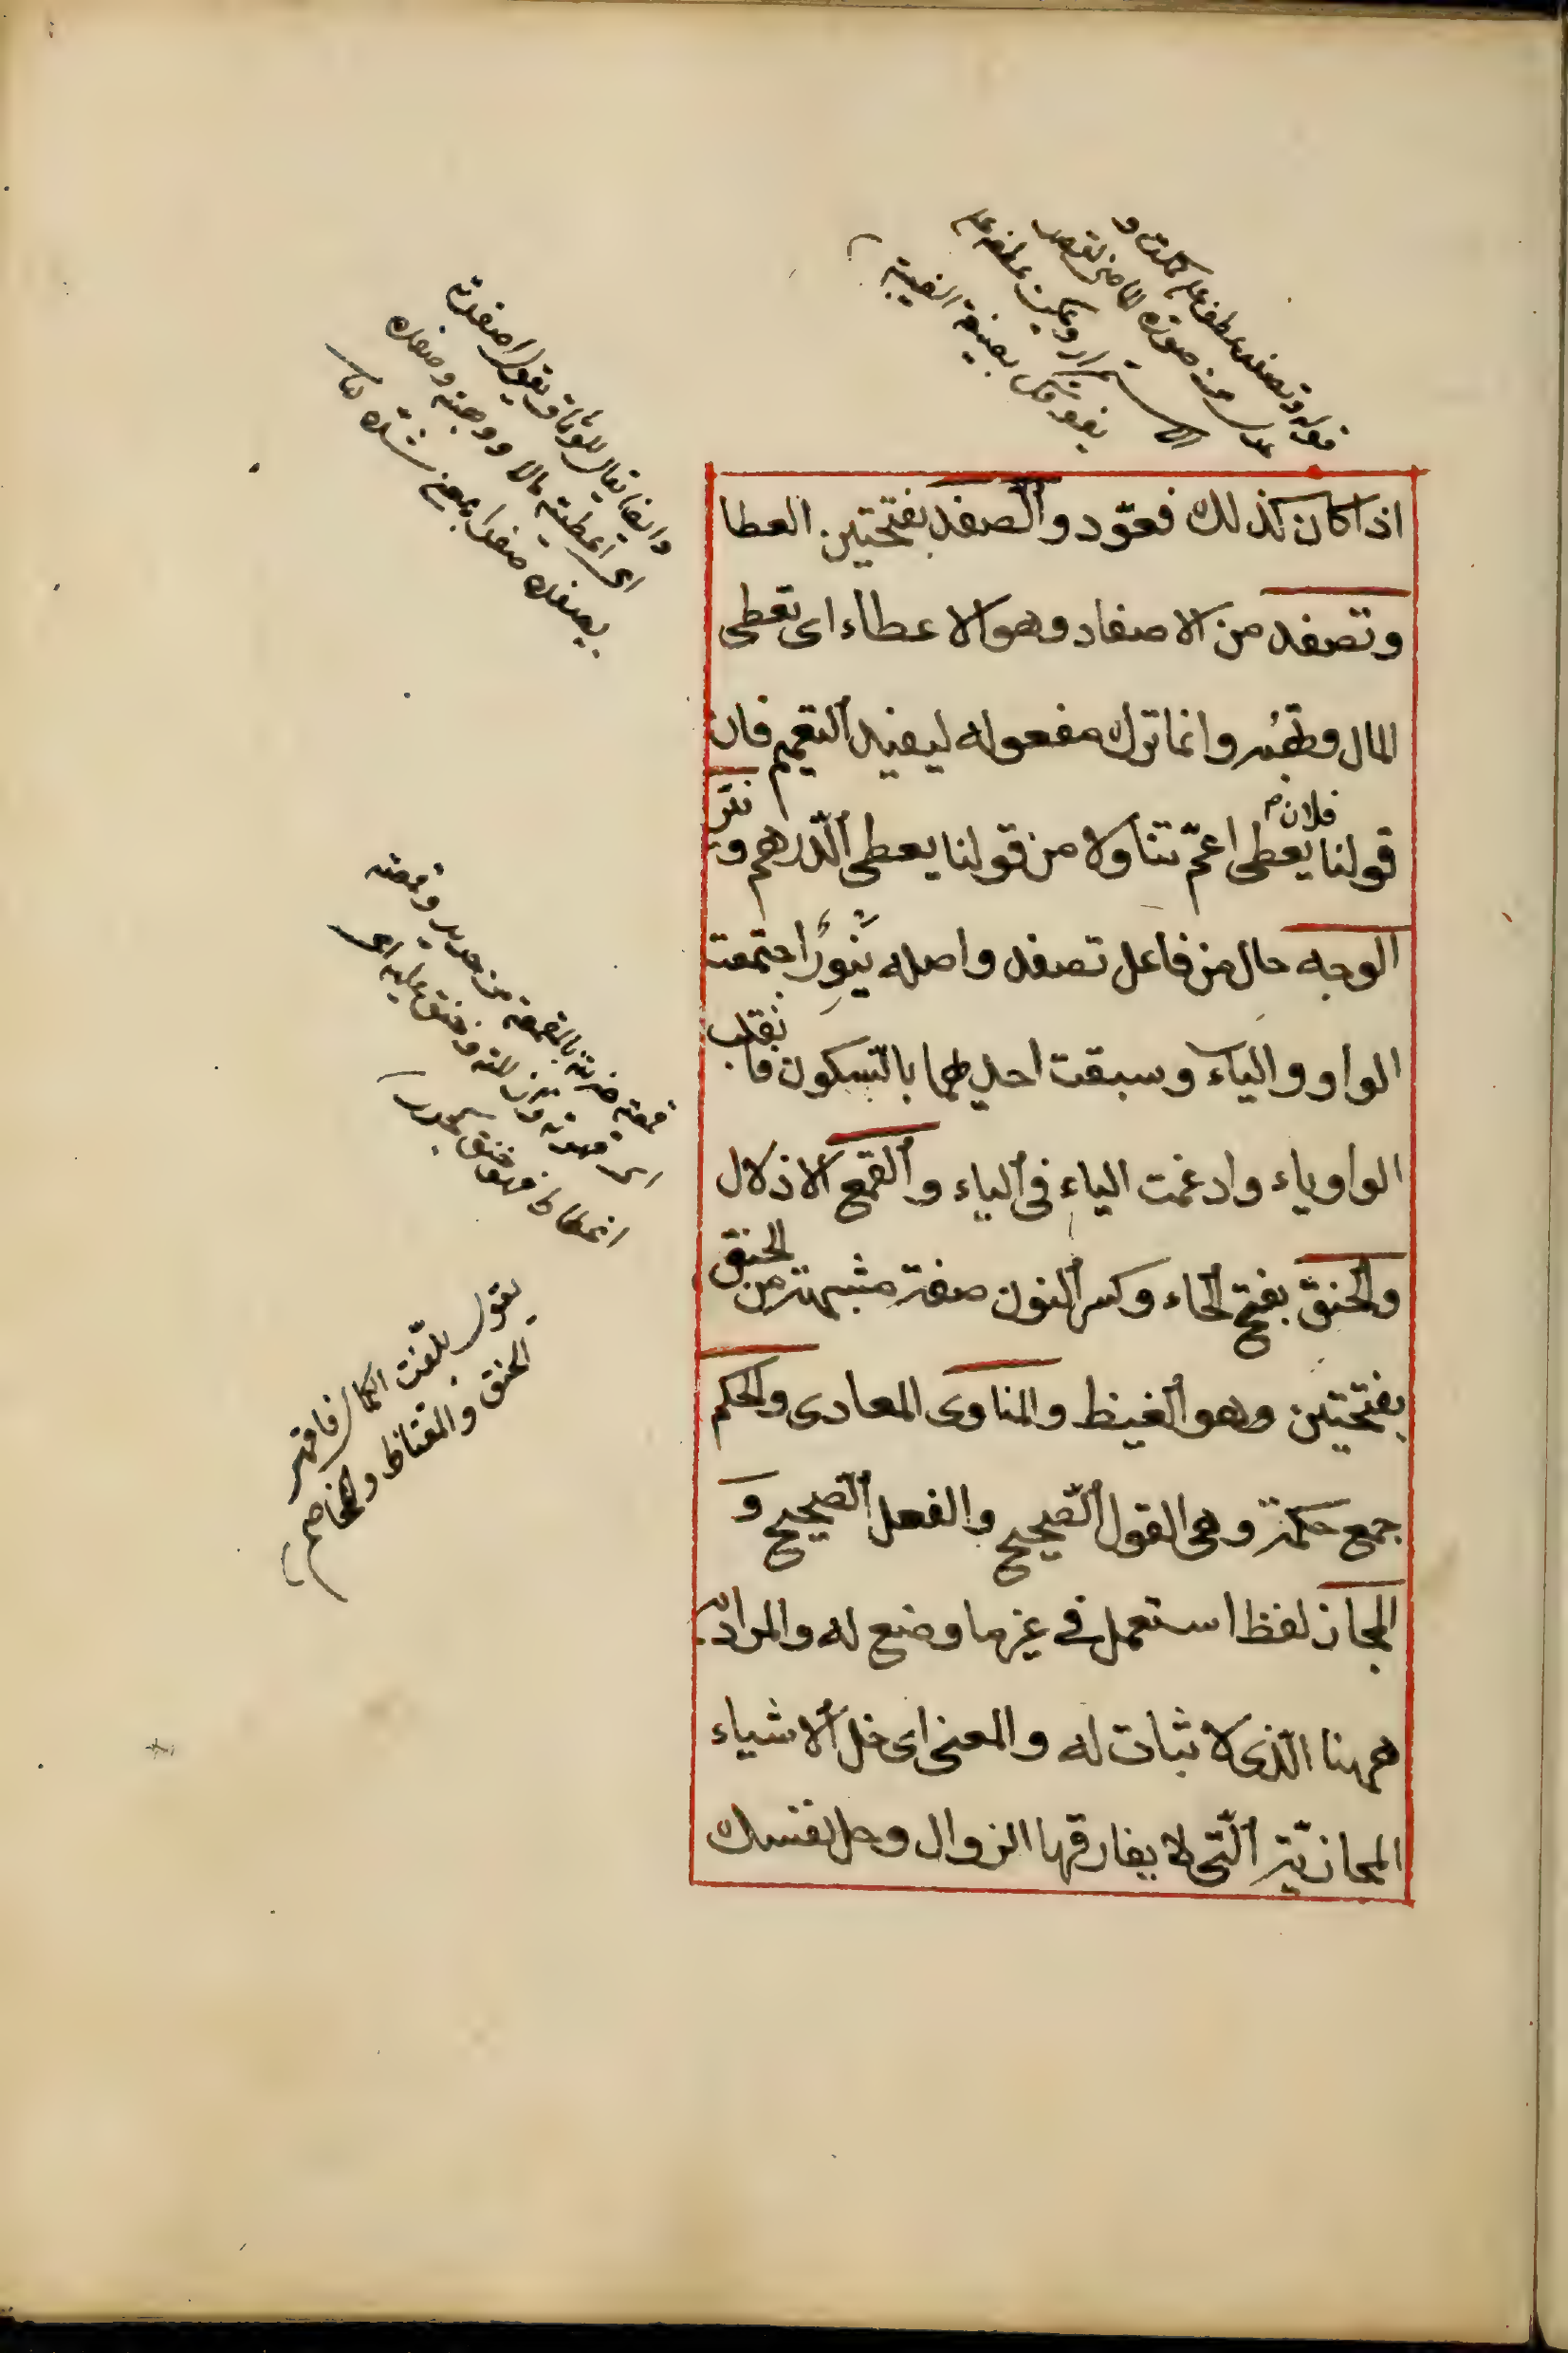 اذا كان كذلك فعوّد والصفد بفتحتين العطا
وتصفد من الاصفاد وهو الاعطاء اى تعطى
المال وتهبه وانما ترك مفعوله ليفيد التعميم فان
قولنا فلان يعطى اعمّ تناولا من قولنا يعطى الدّرهم و
الوجه حال من فاعل تصفد واصله نَيْوِرٌ اجتمعت
الواو والياء وسبقت احديهما بالسّكون فانقلب
الواو ياء وادغمت الياء فى الياء والقمع الاذلال
والحنق بفتح الحاء وكسر النون صفة مشبهة من الحنق
بفتحتين وهو الغيظ والمناوى المعادى والحكم
جمع حكمة وهى القول الصّحيح والفعل الصّحيح و
المجاز لفظ استعمل فى غير ما وضع له والمراد
ههنا الّذى لا ثبات له والمعنى اى خل الاشياء
المجازيّة الّتى لا يفارقها الزوال وحل نفسك
قوله وتصفد عطف على
يفوقكل بصيغة الغيبة
وايضا يقال
اى اعطيته مالا ووهبته وصفده
يصفده صفدا بمعنى شدّه
قمعته ضربته بالمقمعة من حديد وقمعته
اى قهرته وذللته وحنق عليه اى
اغتاظ فهو حنق
يقول بلّغت الكمال فاقهر
الحنق والمغتاظ والمخاصم